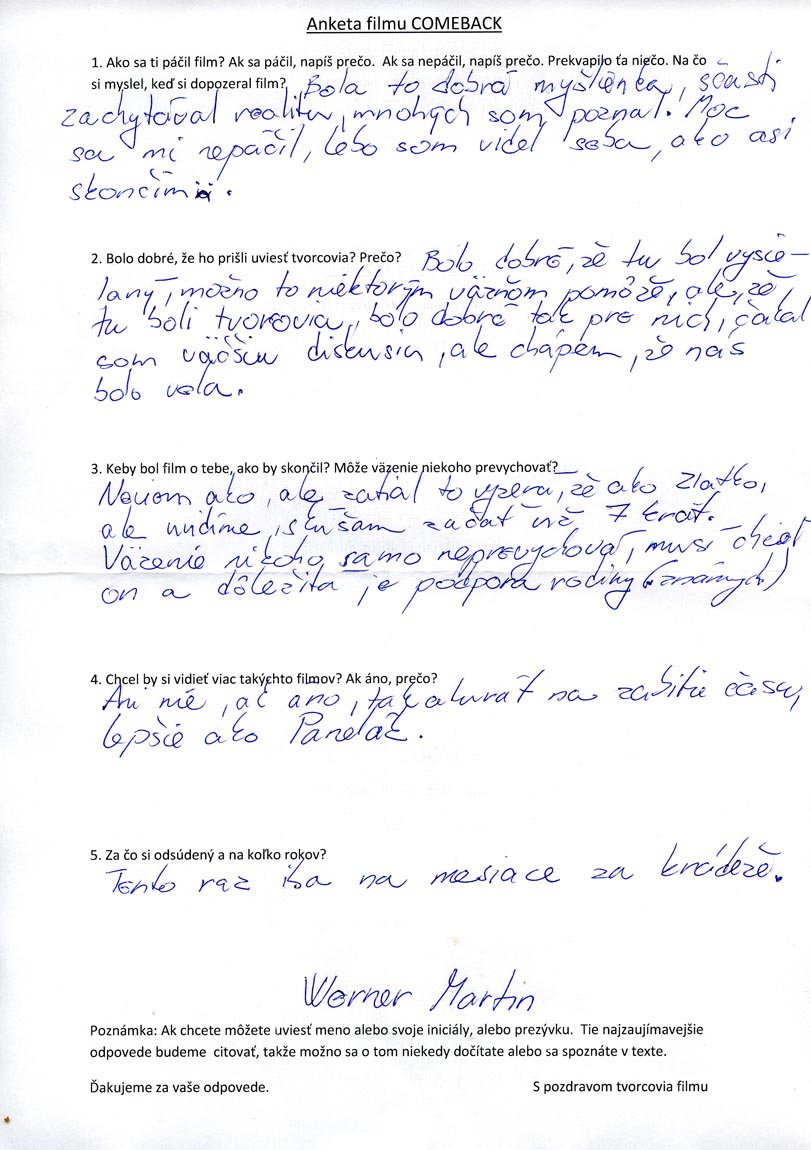 Anketa filmu COMEBACK
1. Ako sa ti páčil film? Ak sa páčil, napíš prečo. Ak sa nepáčil, napíš prečo. Prekvapilo ťa niečo. Na čo
si myslel, keď si dopozeral film? Bola to dobrá myšlienka, sčasti
zachytával realitu, mnohých som poznal. Moc
sa mi nepáčil, lebo som videl seba, ako asi
skončím.
2. Bolo dobré, že ho prišli uviesť tvorcovia? Prečo? Bolo dobré, že tu bol vysie-
laný, možno to niektorým väzňom pomôže, ale, že
tu boli tvorcovia, bolo dobré tak pre nich, čakal
som väčšiu diskusiu, ale chápem, že nás
bolo veľa.
3. Keby bol film o tebe, ako by skončil? Môže väzenie niekoho prevychovať?
Neviem ako, ale zatiaľ to vyzerá, že ako Zlatko,
ale uvidíme, skúšam začať už 7 krát.
Väzenie nikoho samo neprevychová, musí chcieť
on a dôležitá je podpora rodiny (známych)
4. Chcel by si vidieť viac takýchto filmov? Ak áno, prečo?
Ani nie, ak áno, tak akurát na zabitie času,
lepšie ako Panelák.
5. Za čo si odsúdený a na koľko rokov?
Tento raz iba na mesiace za krádeže.
Werner Martin
Poznámka: Ak chcete môžete uviesť meno alebo svoje iniciály, alebo prezývku. Tie najzaujímavejšie
odpovede budeme citovať, takže možno sa o tom niekedy dočítate alebo sa spoznáte v texte.
Ďakujeme za vaše odpovede. S pozdravom tvorcovia filmu